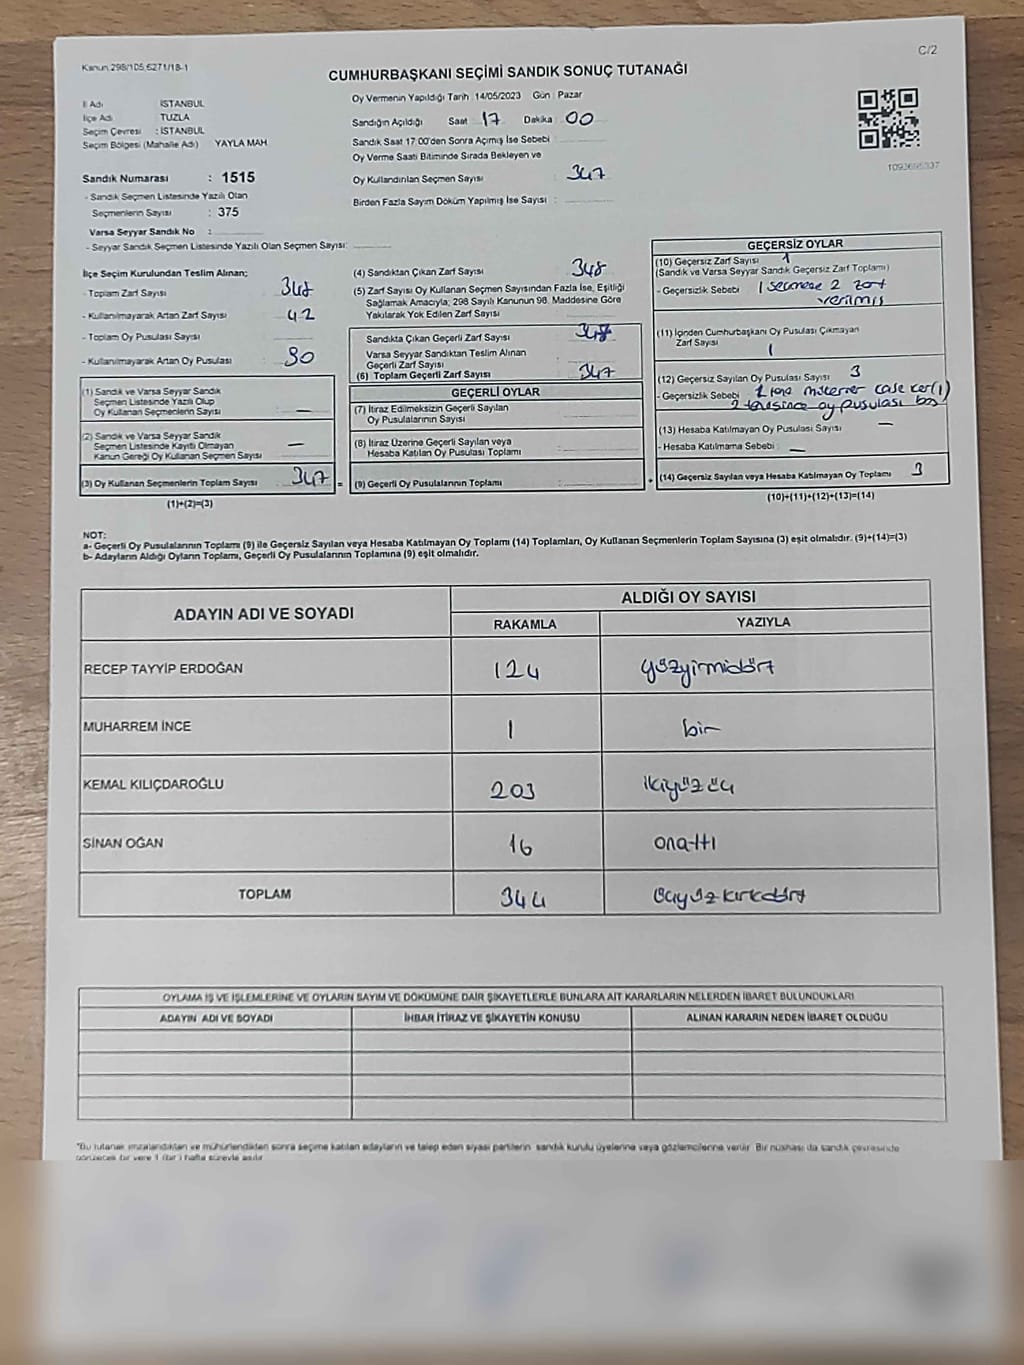 Kanun 298/105,6271/18-1
C/2
CUMHURBAŞKANI SEÇİMİ SANDIK SONUÇ TUTANAĞI
İl Adı : İSTANBUL
İlçe Adı : TUZLA
Seçim Çevresi : İSTANBUL
Seçim Bölgesi (Mahalle Adı) YAYLA MAH
Sandık Numarası : 1515
- Sandık Seçmen Listesinde Yazılı Olan
Seçmenlerin Sayısı : 375
Varsa Seyyar Sandık No :
- Seyyar Sandık Seçmen Listesinde Yazılı Olan Seçmen Sayısı:
Oy Vermenin Yapıldığı Tarih 14/05/2023 Gün : Pazar
Sandığın Açıldığı Saat 17 Dakika 00
Sandık Saat 17:00'den Sonra Açımış İse Sebebi :
Oy Verme Saati Bitiminde Sırada Bekleyen ve
Oy Kullandırılan Seçmen Sayısı : 347
Birden Fazla Sayım Döküm Yapılmış İse Sayısı :
1093695337
İlçe Seçim Kurulundan Teslim Alınan;
- Toplam Zarf Sayısı 348
- Kullanılmayarak Artan Zarf Sayısı : 42
- Toplam Oy Pusulası Sayısı :
- Kullanılmayarak Artan Oy Pusulası : 30
(1) Sandık ve Varsa Seyyar Sandık
Seçmen Listesinde Yazılı Olup
Oy Kullanan Seçmenlerin Sayısı : —
(2) Sandık ve Varsa Seyyar Sandık
Seçmen Listesinde Kayıtlı Olmayan
Kanun Gereği Oy Kullanan Seçmen Sayısı : —
(3) Oy Kullanan Seçmenlerin Toplam Sayısı : 347 =
(1)+(2)=(3)
(4) Sandıktan Çıkan Zarf Sayısı : 348
(5) Zarf Sayısı Oy Kullanan Seçmen Sayısından Fazla İse, Eşitliği
Sağlamak Amacıyla; 298 Sayılı Kanunun 98. Maddesine Göre
Yakılarak Yok Edilen Zarf Sayısı :
Sandıkta Çıkan Geçerli Zarf Sayısı :
Varsa Seyyar Sandıktan Teslim Alınan
Geçerli Zarf Sayısı :
(6) Toplam Geçerli Zarf Sayısı : 347
GEÇERLİ OYLAR
(7) İtiraz Edilmeksizin Geçerli Sayılan
Oy Pusulalarının Sayısı :
(8) İtiraz Üzerine Geçerli Sayılan veya
Hesaba Katılan Oy Pusulası Toplamı :
(9) Geçerli Oy Pusulalarının Toplamı : +
GEÇERSİZ OYLAR
(10) Geçersiz Zarf Sayısı : 1
(Sandık ve Varsa Seyyar Sandık Geçersiz Zarf Toplamı)
- Geçersizlik Sebebi : 1 seçmene 2 zarf
verilmiş
(11) İçinden Cumhurbaşkanı Oy Pusulası Çıkmayan
Zarf Sayısı : 1
(12) Geçersiz Sayılan Oy Pusulası Sayısı : 3
- Geçersizlik Sebebi
oy pusulası boş
(13) Hesaba Katılmayan Oy Pusulası Sayısı : —
- Hesaba Katılmama Sebebi : —
(14) Geçersiz Sayılan veya Hesaba Katılmayan Oy Toplamı : 3
(10)+(11)+(12)+(13)=(14)
NOT:
a- Geçerli Oy Pusulalarının Toplamı (9) ile Geçersiz Sayılan veya Hesaba Katılmayan Oy Toplamı (14) Toplamları, Oy Kullanan Seçmenlerin Toplam Sayısına (3) eşit olmalıdır. (9)+(14)=(3)
b- Adayların Aldığı Oyların Toplamı, Geçerli Oy Pusulalarının Toplamına (9) eşit olmalıdır.
ADAYIN ADI VE SOYADI
ALDIĞI OY SAYISI
RAKAMLA YAZIYLA
RECEP TAYYİP ERDOĞAN 124 yüzyirmidört
MUHARREM İNCE 1 bir
KEMAL KILIÇDAROĞLU 203 ikiyüzüç
SİNAN OĞAN 16 onaltı
TOPLAM 344 üçyüzkırkdört
OYLAMA İŞ VE İŞLEMLERİNE VE OYLARIN SAYIM VE DÖKÜMÜNE DAİR ŞİKAYETLERLE BUNLARA AİT KARARLARIN NELERDEN İBARET BULUNDUKLARI
ADAYIN ADI VE SOYADI İHBAR İTİRAZ VE ŞİKAYETİN KONUSU ALINAN KARARIN NEDEN İBARET OLDUĞU
*Bu tutanak imzalandıktan ve mühürlendikten sonra seçime katılan adayların ve talep eden siyasi partilerin sandık kurulu üyelerine veya gözlemcilerine verilir. Bir nüshası da sandık çevresinde
görülecek bir yere 1 (bir) hafta süreyle asılır.